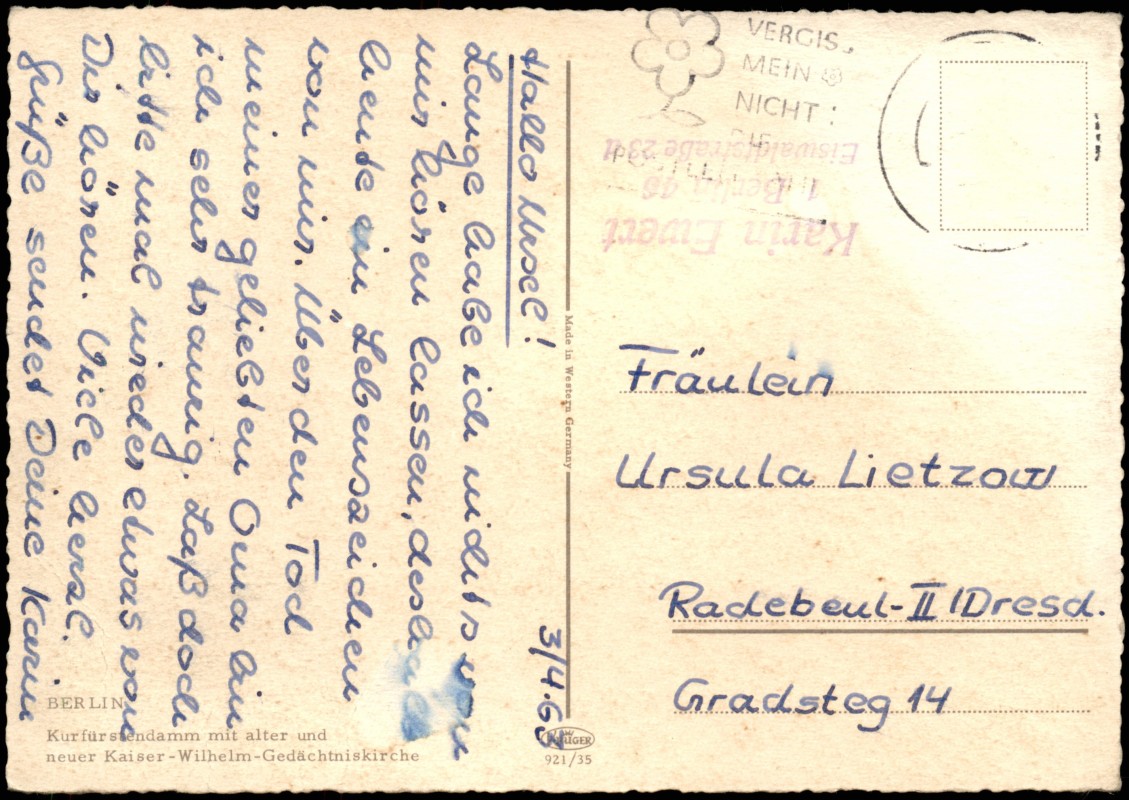 Hallo Ursel!
3/4.65
Lange habe ich nichts von
mir hören lassen, deshalb
heute ein Lebenszeichen
von mir. Über den Tod
meiner geliebten Oma bin
ich sehr traurig. Laß doch
bitte mal wieder etwas von
Dir hören. Viele herzl.
Grüße sendet Deine Karin
BERLIN
Kurfürstendamm mit alter und
neuer Kaiser-Wilhelm-Gedächtniskirche
Made in Western Germany
KRÜGER
921/35
VERGIS
MEIN
NICHT:
Karin Ewert
1 Berlin 46
Eiswaldtstraße 23a
Fräulein
Ursula Lietzow
Radebeul-II/Dresd.
Gradsteg 14